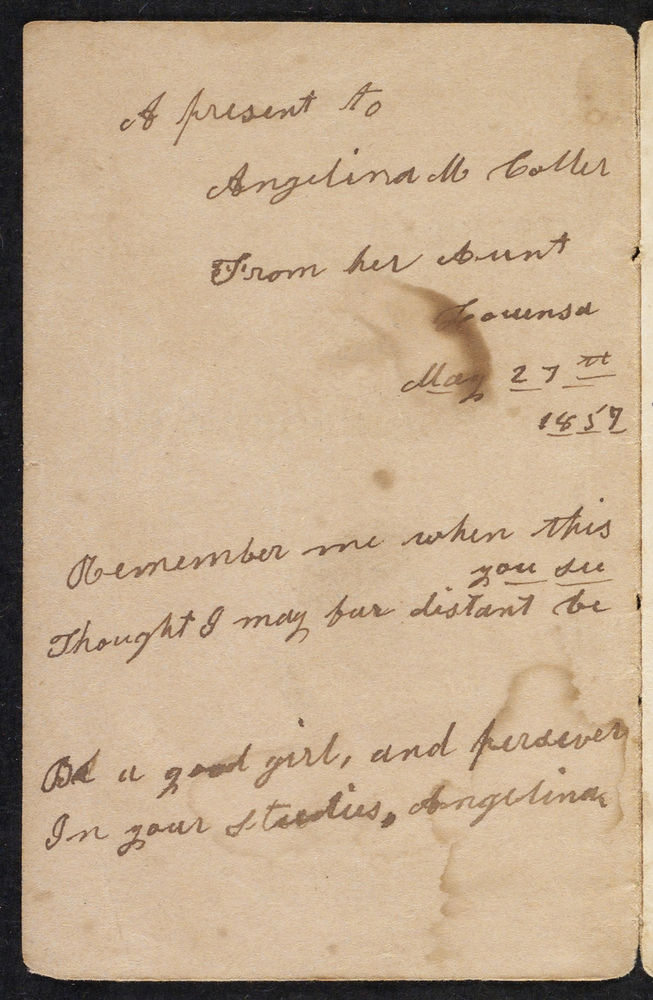 A present to
Angelina M Coller
From her Aunt
Louensa
May 27th
1857
Remember me when this
you see
Thought I may far distant be
Be a good girl, and persever
In your studies, Angelina.